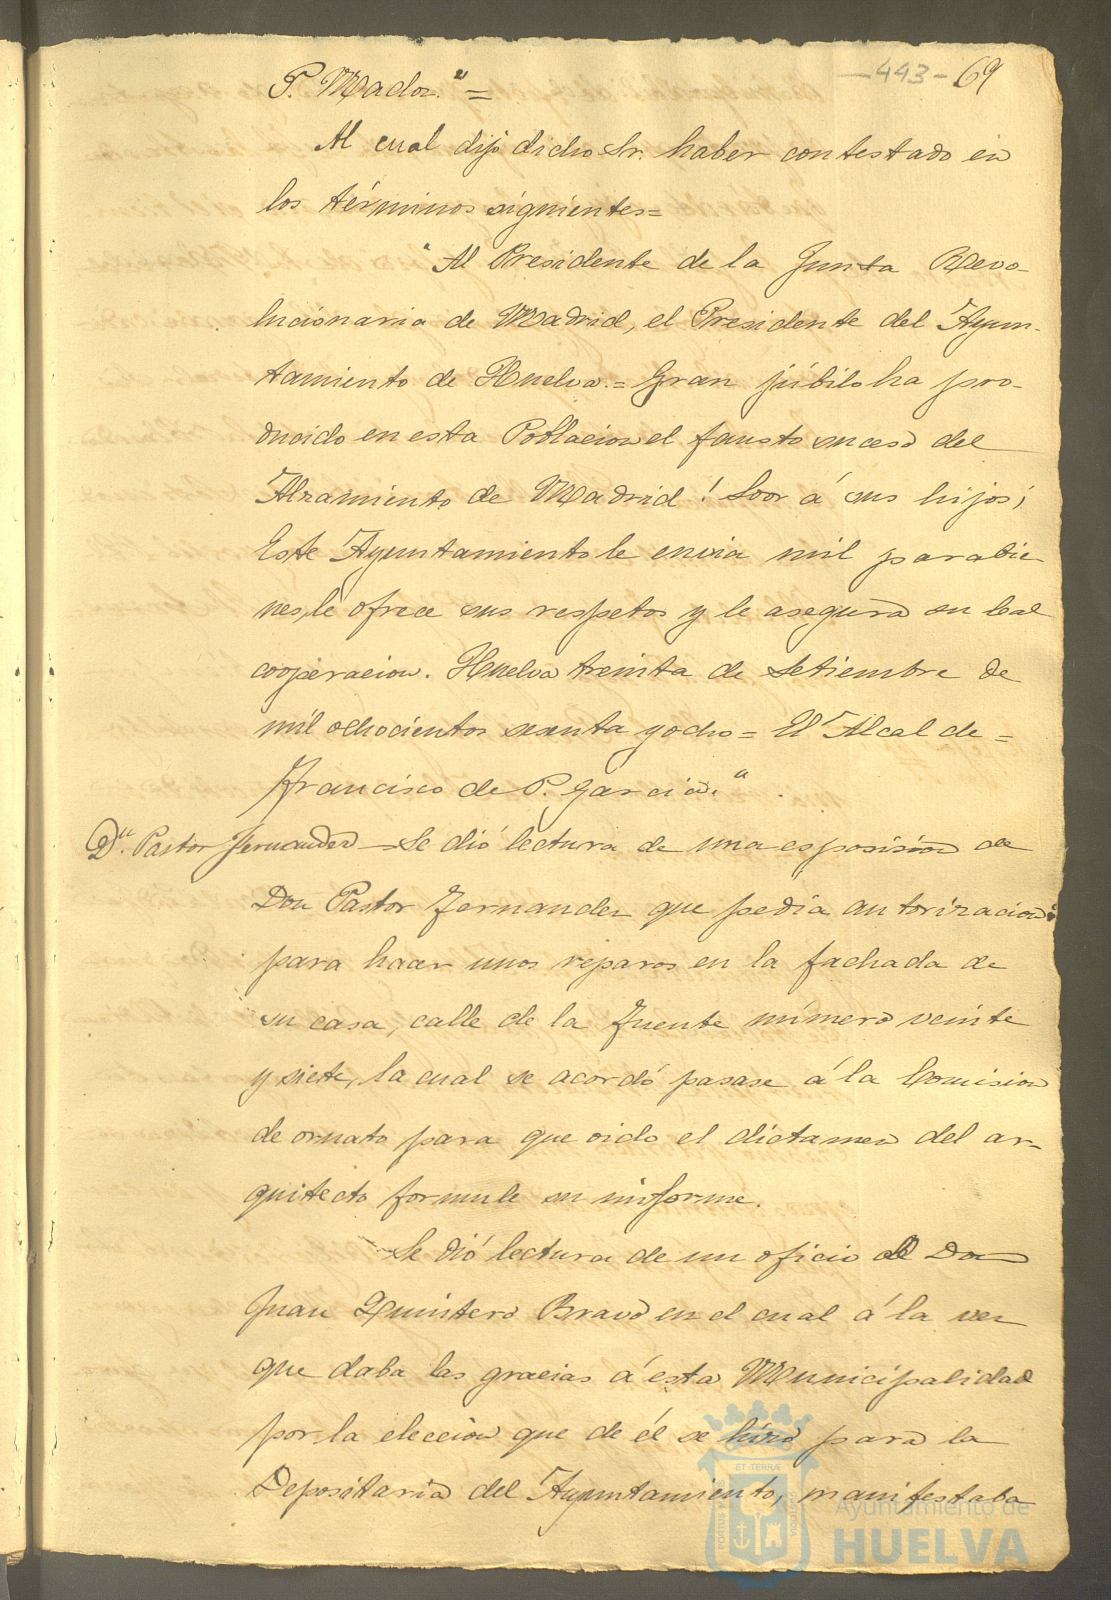 -443- 69
P. Madoz." =
Al cual dijo dicho Sr. haber contestado en
los términos siguientes=
"Al Presidente de la Junta Revo-
lucionaria de Madrid, el Presidente del Ayun-
tamiento de Huelva.= Gran júbilo ha pro-
ducido en esta Poblacion el fausto suceso del
Alzamiento de Madrid ! Loor á sus hijos ¡
Este Ayuntamiento le envia mil parabie-
nes, le ofrece sus respetos y le asegura su leal
cooperacion. Huelva treinta de Setiembre de
mil ochocientos sesenta y ocho = El Alcalde =
Francisco de P. Garcia."
Dn. Pastor Fernandez — Se dió lectura de una esposision de
Don Pastor Fernandez que pedia autorizacion
para hacer unos reparos en la fachada de
su casa, calle de la Fuente número veinte
y siete, la cual se acordó pasase á la Comision
de ornato para que oido el dictamen del ar-
quitecto formule su informe.
Se dió lectura de un oficio de Don
Juan Quintero Bravo en el cual á la vez
que daba las gracias á esta Municipalidad
por la eleccion que de él se hizo para la
Depositaria del Ayuntamiento, manifestaba
ET TERRÆ
PORTUS MARIS
CUSTODIA
Ayuntamiento de
HUELVA